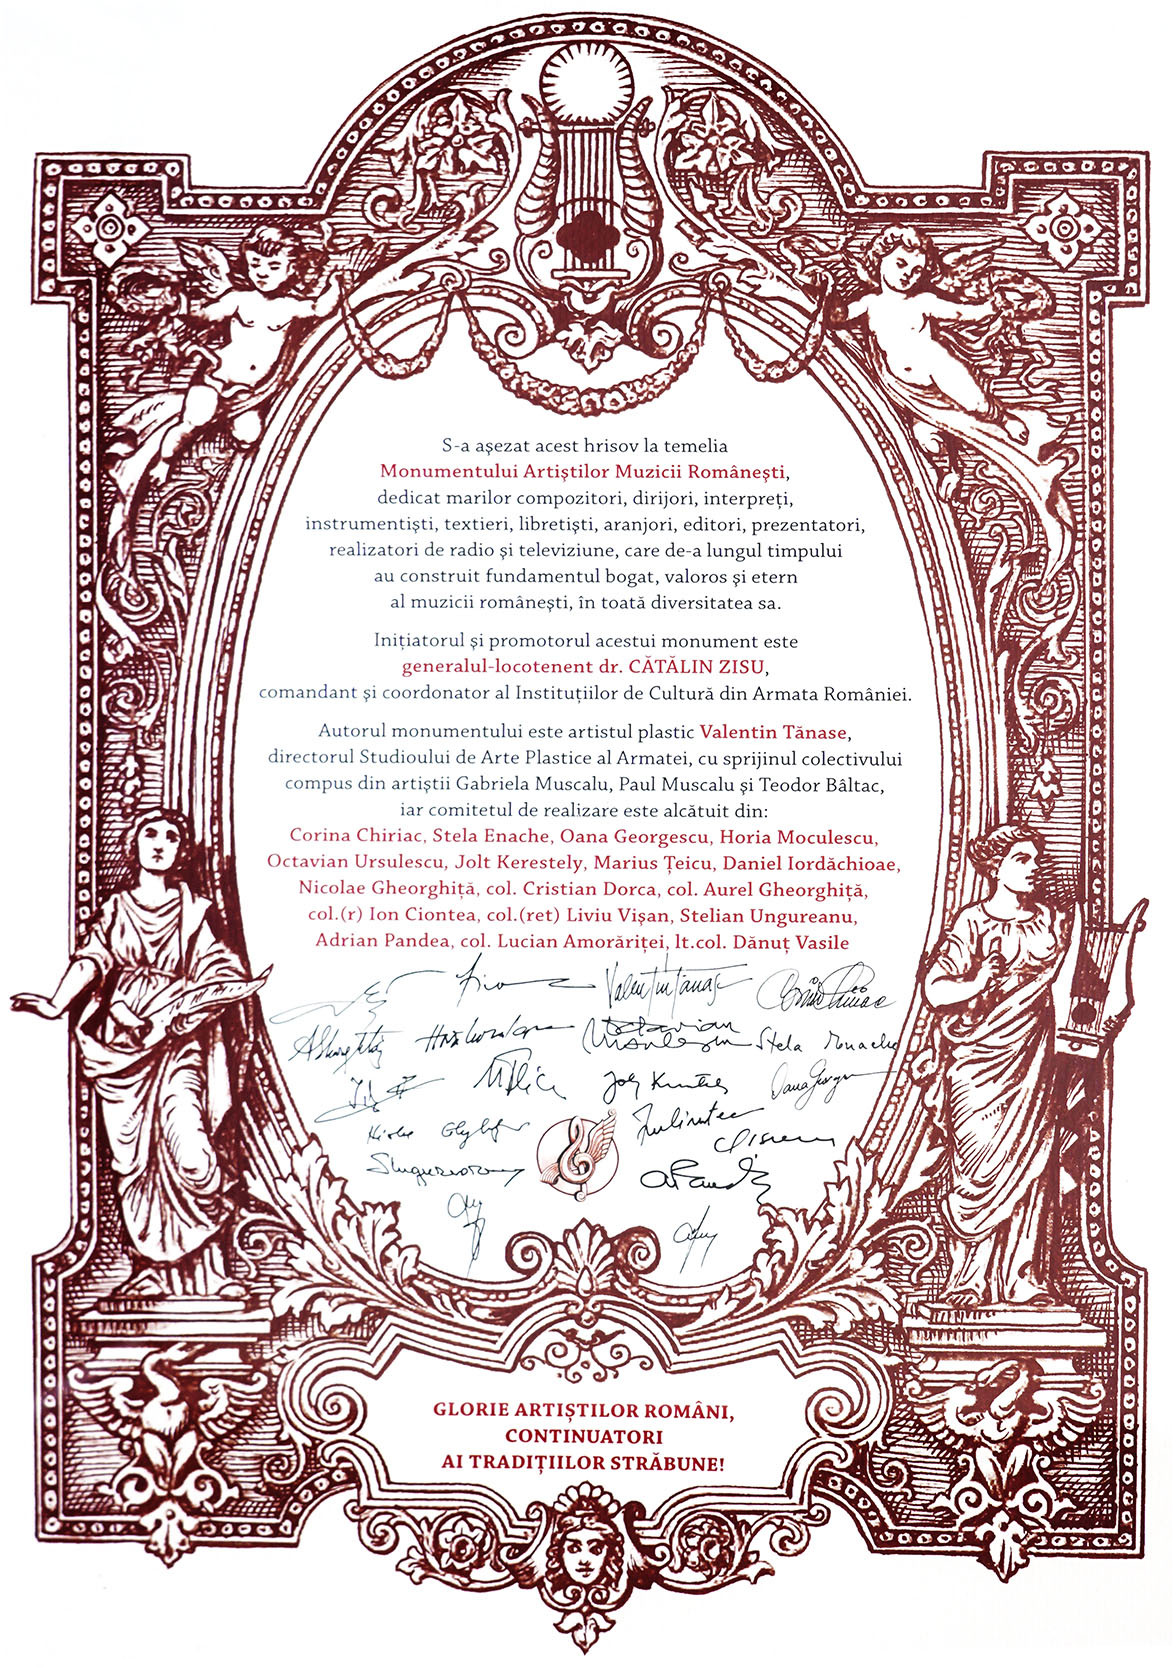 S-a așezat acest hrisov la temelia
Monumentului Artiștilor Muzicii Românești,
dedicat marilor compozitori, dirijori, interpreți,
instrumentiști, textieri, libretiști, aranjori, editori, prezentatori,
realizatori de radio și televiziune, care de-a lungul timpului
au construit fundamentul bogat, valoros și etern
al muzicii românești, în toată diversitatea sa.
Inițiatorul și promotorul acestui monument este
generalul-locotenent dr. CĂTĂLIN ZISU,
comandant și coordonator al Instituțiilor de Cultură din Armata României.
Autorul monumentului este artistul plastic Valentin Tănase,
directorul Studioului de Arte Plastice al Armatei, cu sprijinul colectivului
compus din artiștii Gabriela Muscalu, Paul Muscalu și Teodor Bâltac,
iar comitetul de realizare este alcătuit din:
Corina Chiriac, Stela Enache, Oana Georgescu, Horia Moculescu,
Octavian Ursulescu, Jolt Kerestely, Marius Țeicu, Daniel Iordăchioae,
Nicolae Gheorghiță, col. Cristian Dorca, col. Aurel Gheorghiță,
col.(r) Ion Ciontea, col.(ret) Liviu Vișan, Stelian Ungureanu,
Adrian Pandea, col. Lucian Amorăriței, lt.col. Dănuț Vasile
Valentin Tănase
Octavian
Stela Enache
GLORIE ARTIȘTILOR ROMÂNI,
CONTINUATORI
AI TRADIȚIILOR STRĂBUNE!